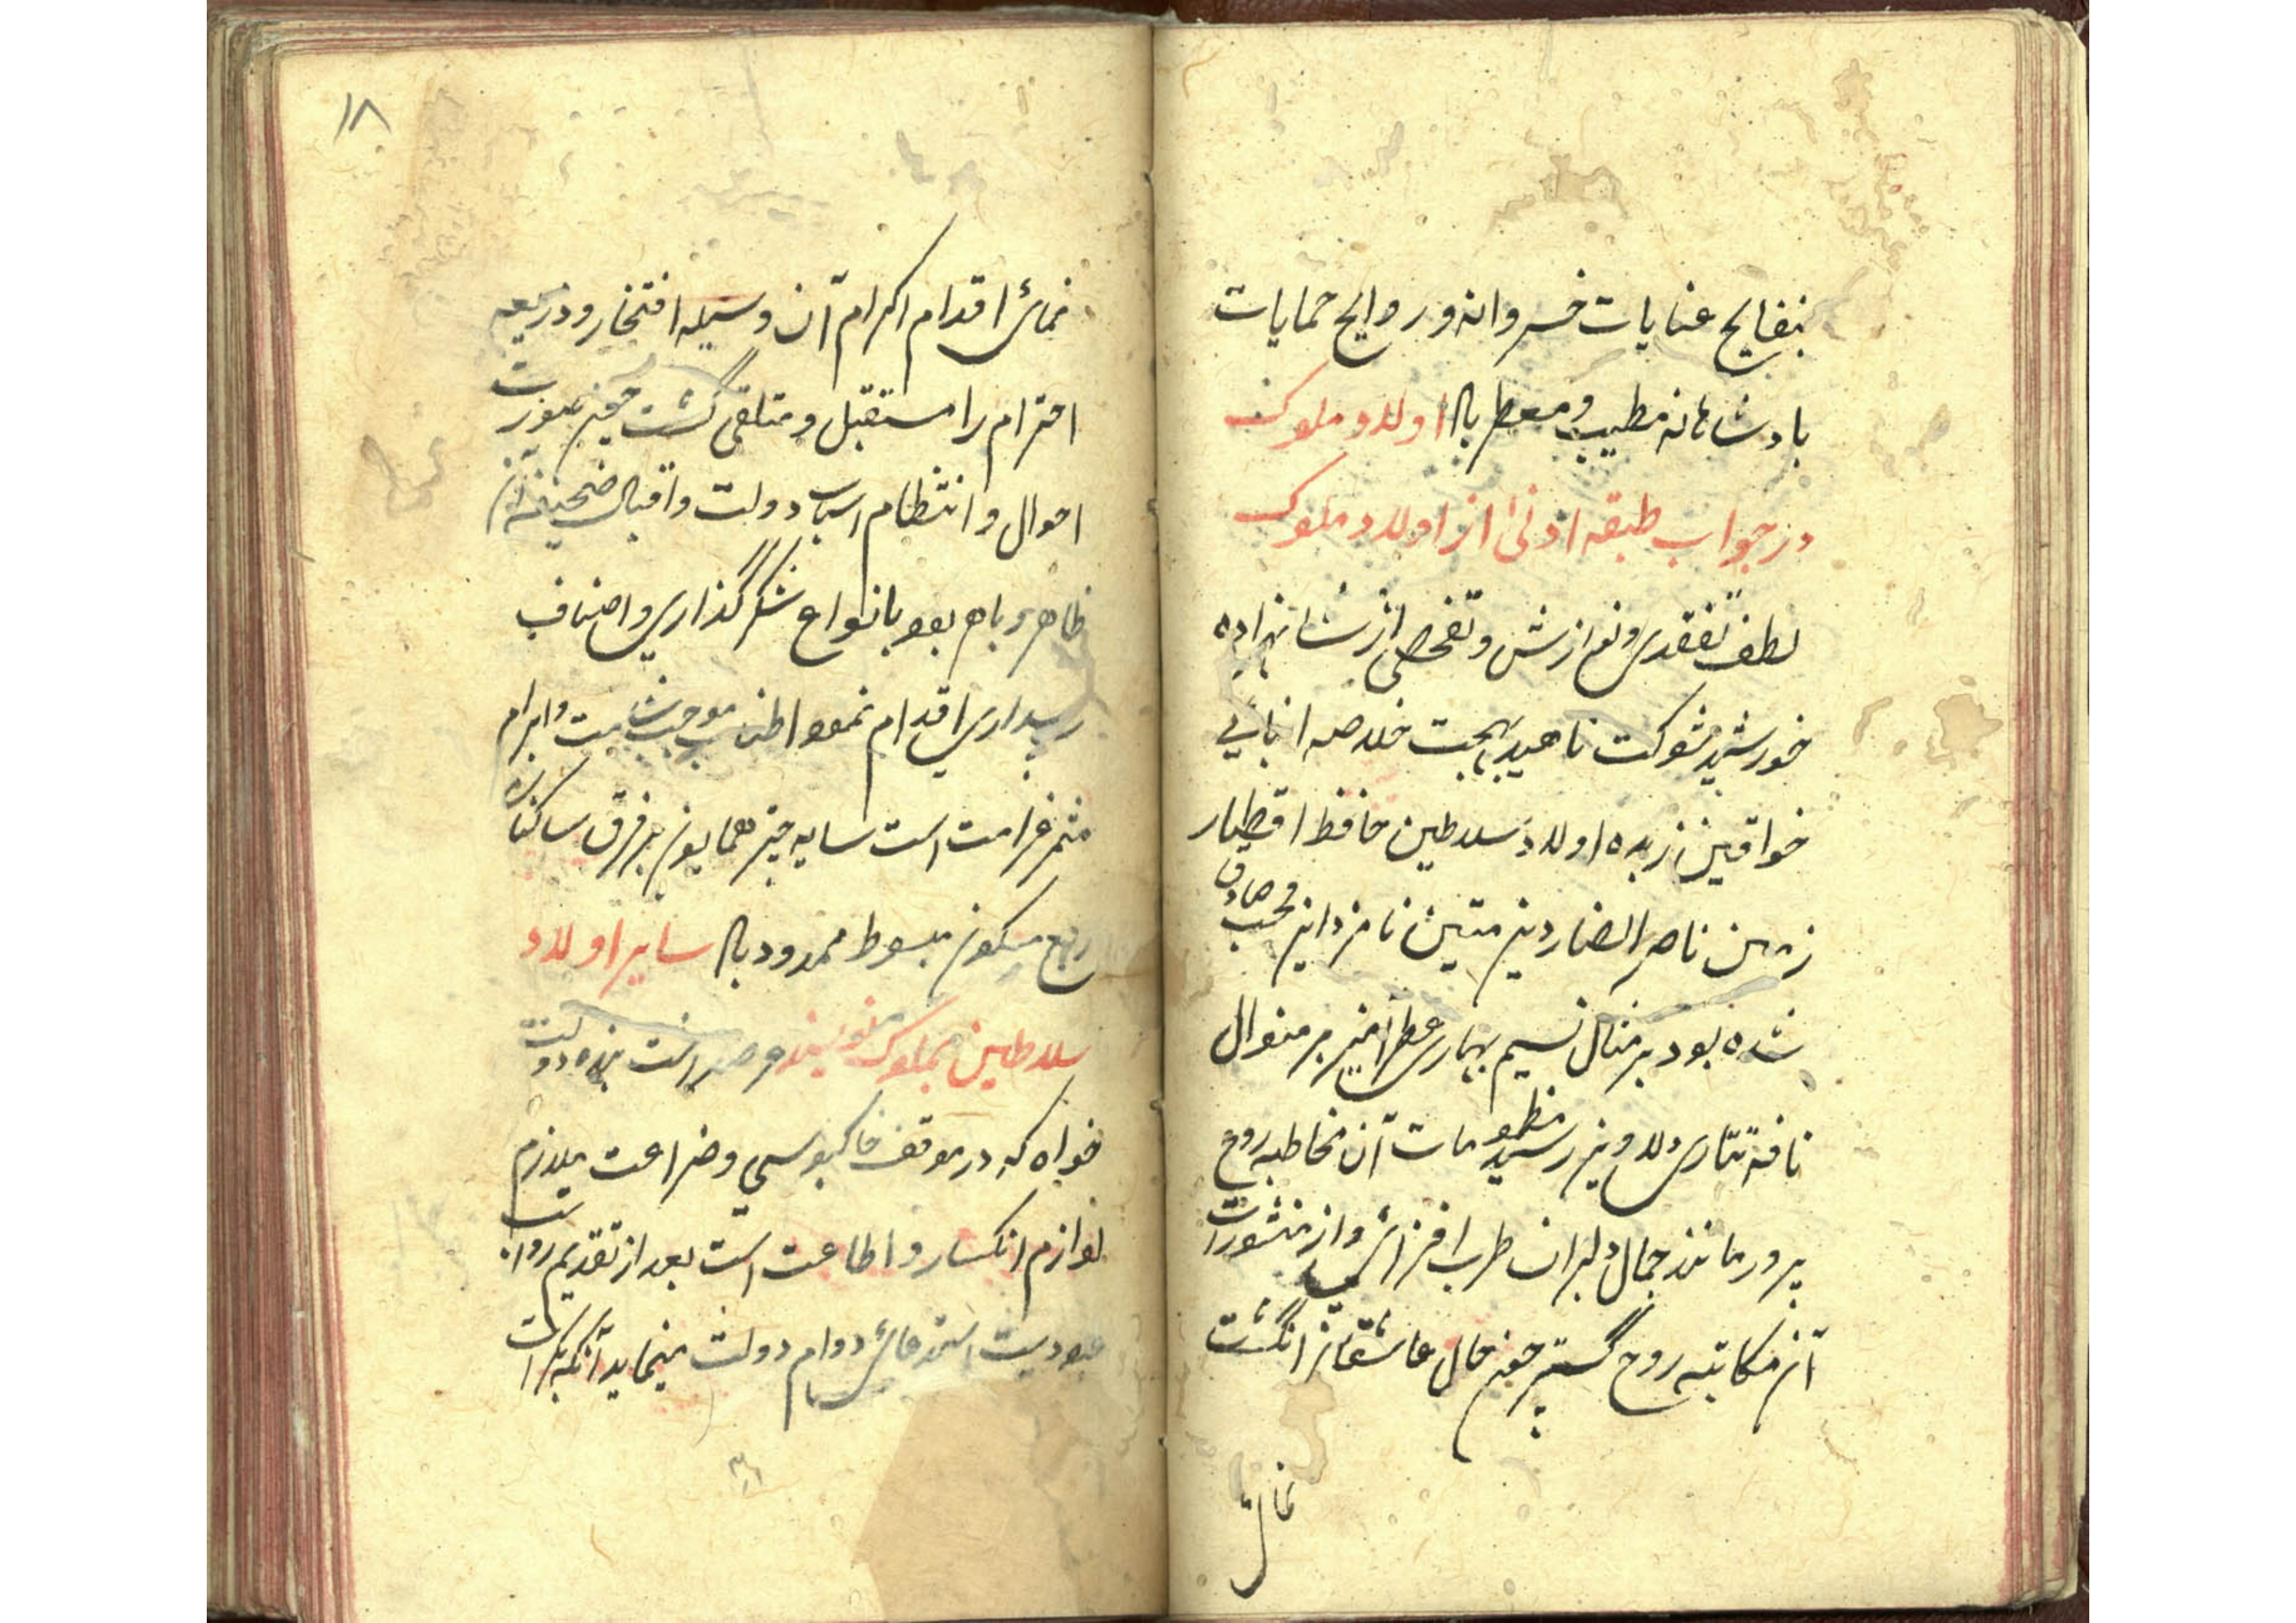 بنفایح عنایات خسروانه و روایح حمایات
بادشاهانه مطیب و معطر باد اولاد ملوک
در جواب طبقه ادنی از اولاد ملوک
لطف تفقدی و نوازش و تفحصی از شاهزاده
خورشید شوکت ناهید بهجت خلاصه انبایی
خواقین زبده اولاد سلاطین حافظ اقطار
زمین ناصر انصار دین متین نامزد این محب صادق
شده بود بر مثال نسیم بهاری عطرآمیز بر منوال
نافه تتاری دلاویز رسید منظومات آن مخاطبه روح
پرور مانند جمال دلبران طرب افزای و از منثورات
آن مکاتبه روح گستر چون خال عاشقان انگشت
نمای
۱۸
نمای اقدام اکرام آن وسیله افتخار و ذریعه
احترام را مستقبل و متلقی گشت چون صورت
احوال و انتظام اسباب دولت و اقبال صحیفه آن
ظاهر و باهر بود بانواع شکرگذاری و اصناف
اقدام نمود اطناب موجب و ابرام
مثمر غرامت است سایه چتر همایون بر فرق ساکنان
ربع مسکون مبسوط ممدود باد سایر اولاد
سلاطین بملوک نویسند عرضه داشت بنده دولت
خواه که در موقف خاکبوسی و ضراعت ملازم
لوازم انکسار و اطاعت است بعد از تقدیم رواتب
عبودیت استدعای دوام دولت مینماید آنکه